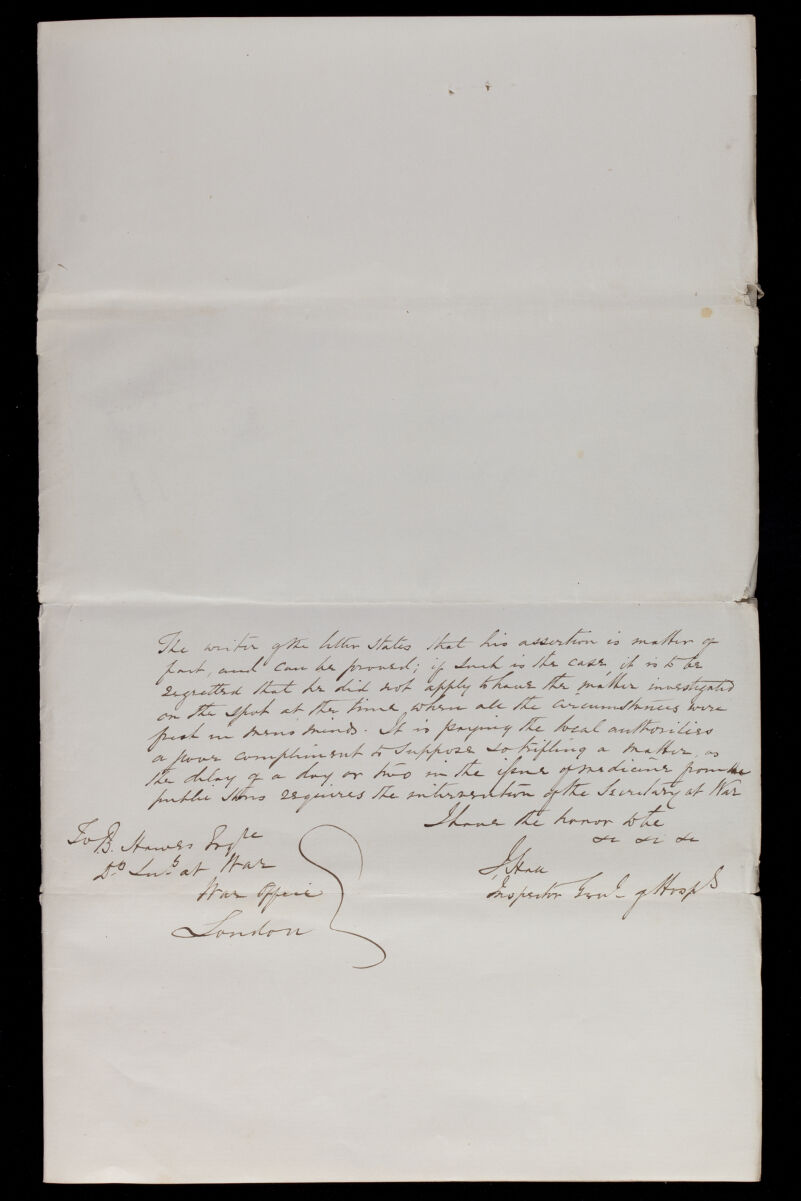 The writer of the letter states that his assertion is matter of
fact, and can be proved; if such is the case, it is to be
regretted that he did not apply to have the matter investigated
on the spot at the time, when all the circumstances were
fresh in men's minds. It is paying the local authorities
a poor compliment to suppose so trifling a matter, as
the delay of a day or two in the issue of medicine from the
public stores requires the intervention of the Secretary at War
I have the honor to be
&c &c &c
J Hall
Inspector Genl of Hospls
To B. Hawes Esqre
at War
War Office
London